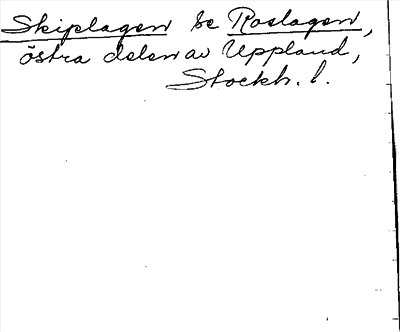 Skiplagen se Roslagen,
östra delen av Uppland,
Stockh. l.